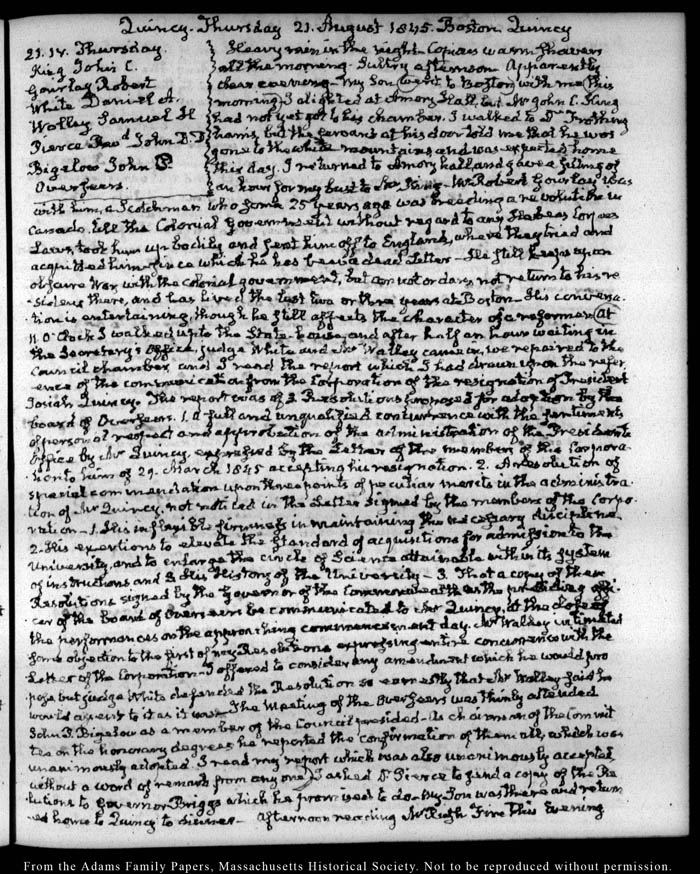 Quincy. Thursday 21. August 1845. Boston Quincy
21. IV. Thursday.
King John C.
Gourlay Robert
White Daniel A.
Walley Samuel H
Pierce Revd John D.D
Bigelow John P.
Overseers.
Heavy rain in the night. Copious warm showers
all the morning. Sultry afternoon. Apparently
clear evening. My Son went to Boston with me this
morning I alighted at Amory Hall, but Mr John C. King
had not yet got to his chamber. I walked to Dr Frothing
hams, but the servant at his door told me that he was
gone to the white mountains and was expected home
this day. I returned to Amory hall and gave a sitting of
an hour for my bust to Mr King. Mr Robert Gourlay was
with him, a Scotchman who some 25 years ago was breeding a revolution in
Canada, till the Colonial Government without regard to any Habeas Corpus
Laws, took him up bodily and sent him off to England, where they tried and
acquitted him, since which he has been a dead Letter. He still keeps up an
obscure War with the colonial government, but can not or does not return to his re
-sidence there, and has lived the last two or three years at Boston. His conversa-
tion is entertaining, though he still affects the character of a reformer. At
11 O'Clock I walked up to the State-house, and after half an hour waiting in
the Secretary's Office, judge White and Mr Walley came in, we repaired to the
Council chamber, and I read the report which I had drawn upon the refer
ence of the communication from the Corporation of the resignation of President
Josiah Quincy. The report was of 3 Resolutions proposed for adoption by the
board of Overseers. 1. A full and unqualified concurrence with the sentiments
of personal respect and approbation of the administration of the Presidents
Office by Mr Quincy, expressed by the Letter of the members of the Corpora
-tion to him of 29. March 1845 accepting his resignation. 2. A resolution of
special commendation upon three points of peculiar merit in the administra-
tion of Mr Quincy, not noticed in the Letter signed by the members of the Corpo
-ration. 1. His inflexible firmness in maintaining the necessary discipline.
2. His exertions to elevate the Standard of acquisitions for admission to the
University, and to enlarge the circle of Science attainable within its system
of instructions and 3 His History of the University. 3. That a copy of these
Resolutions signed by the Governor of the Commonwealth as the presiding offi-
cer of the board of Overseers be communicated to Mr Quincy, at the close of
the performances on the approaching commencement day. Mr Walley intimated
some objection to the first of my Resolutions expressing entire concurrence with the
Letter of the Corporation. I offered to consider any amendment which he would pro
pose but judge White defended the Resolution so earnestly that Mr Walley said he
would assent to it as it was. The Meeting of the Overseers was thinly attended
John P. Bigelow as a member of the Council presided. As chairman of the Commit
tee on the honorary degrees he reported the confirmation of them all, which was
unanimously adopted. I read my report which was also unanimously accepted,
without a word of remark from any one. I asked Dr Pierce to send a copy of the Re
lutions to Governor Briggs which he promised to do. My Son was there and return
-ed home to Quincy to dinner. Afternoon reading Mr Fire This Evening
From the Adams Family Papers, Massachusetts Historical Society. Not to be reproduced without permission.